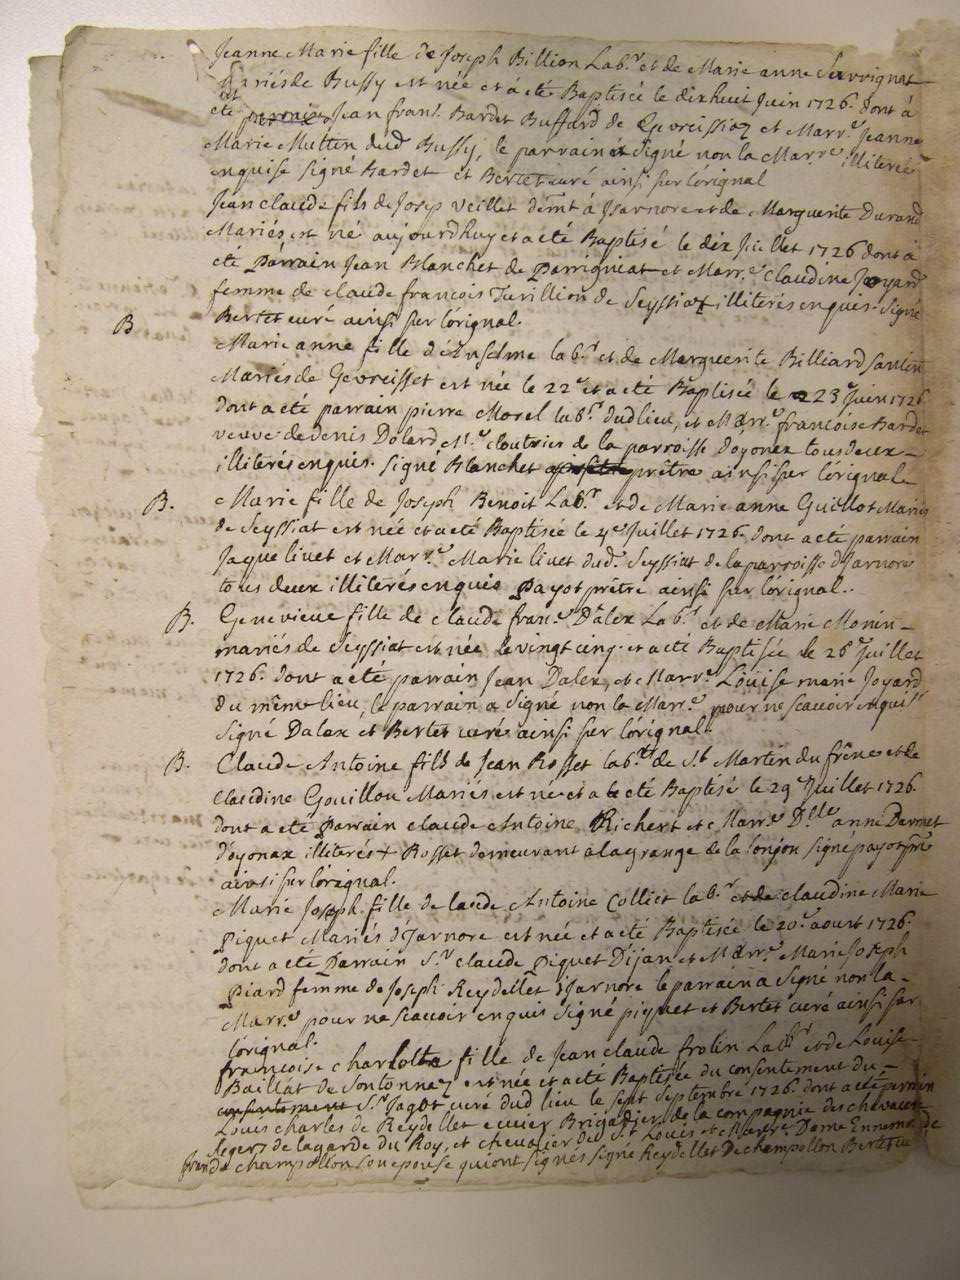 Jeanne Marie fille de Joseph Billion Lab.r et de Marie anne
Mariés de Bussy est née et a été Baptisée le dix huit Juin 1726. dont à
été Jean fran.s Bardet Buffard de et Marr.e Jeanne
Marie Mutten dud. Bussy, le parrain a signé non la Marr.e illiterée
enquise signé Bardet et Bertet curé ainsi sur l'orignal
Jean claude fils de Josep veillet demt à Jsarnore et de Marguerite Durand
Mariés est né aujourdhuy et a été Baptisé le dix Juillet 1726 dont à
été Parrain Jean Blanchet de Parrigniat et Marr.e Claudine Joyard
femme de claude françois Turillion de Seyssiat illiterés enquis. signé
Bertet curé ainsi sur l'orignal.
B Marie anne fille lab.r et de Marguerite Billiard
Mariés de Gevreisset est née le 22e et a été Baptisée le 23e Juin 1726
dont a été parrain pierre Morel lab.r dudlieu, et Marr.e françoise Bardet
veuve de denis Dolard de la parroisse d'oyonax tous deux
illiterés enquis. signé Blanchet prêtre ainsi sur l'orignal
B. Marie fille de Joseph Benoit Lab.r et de Marie anne Guillot Mariés
de Seyssiat est née et a été Baptisée le 4e Juillet 1726. dont a été parrain
Jaque livet et Marr.e Marie livet dud. Seyssiat de la parroisse d'Jsarnore
tous deux illiterés enquis Payot prêtre ainsi sur l'orignal..
B. Genevieve fille de claude fran.s Dalex Lab.r et de Marie Monin
mariés de Seyssiat est née le vingt cinq. et a été Baptisée le 26e Juillet
1726. dont a été parrain Jean Dalex, et Marr.e Louise marie Joyard
du même lieu, le parrain a signé non la Marr.e pour ne scavoir enquise
signé Dalex et Bertet curé ainsi sur l'orignal.
B. Claude Antoine fils de Jean Rosset lab.r de S.t Martin du frêne et de
Claudine Gouillou Mariés est né et a été Baptisé le 29e Juillet 1726.
dont a été Parrain claude Antoine Richert et Marr.e D.lle anne Darmet
d'oyonax illiterés + Rosset demeurant a la grange de la signé payot p.re
ainsi sur l'orignal.
Marie Joseph fille de laude Antoine Colliet lab.r et de claudine Marie
Piquet Mariés d'Jsarnore est née et a été Baptisée le 20e aoust 1726.
dont a été Parrain S.r claude Piquet Dijan et Marr.e Marie Joseph
Piard femme de Joseph Reydellet d'Jsarnore le parrain a signé non la
Marr.e pour ne scavoir enquis signé piquet et Bertet curé ainsi sur
l'orignal.
françoise charlotte fille de Jean claude frolin Lab.r et de Louise
Baillat de Sontonnaz est née et a été Baptisée du consentement du
consentement S.r Jagot curé dud lieu le sept Septembre 1726. dont a été parrain
Louis charles de Reydellet ecuier Brigadier de la compagnie des chevaux
legers de la garde du Roy, et chevalier de S.t Louis et Marr.e Dame
de champollon son epouse qui ont signés signé Reydellet Dechampollon Bertet